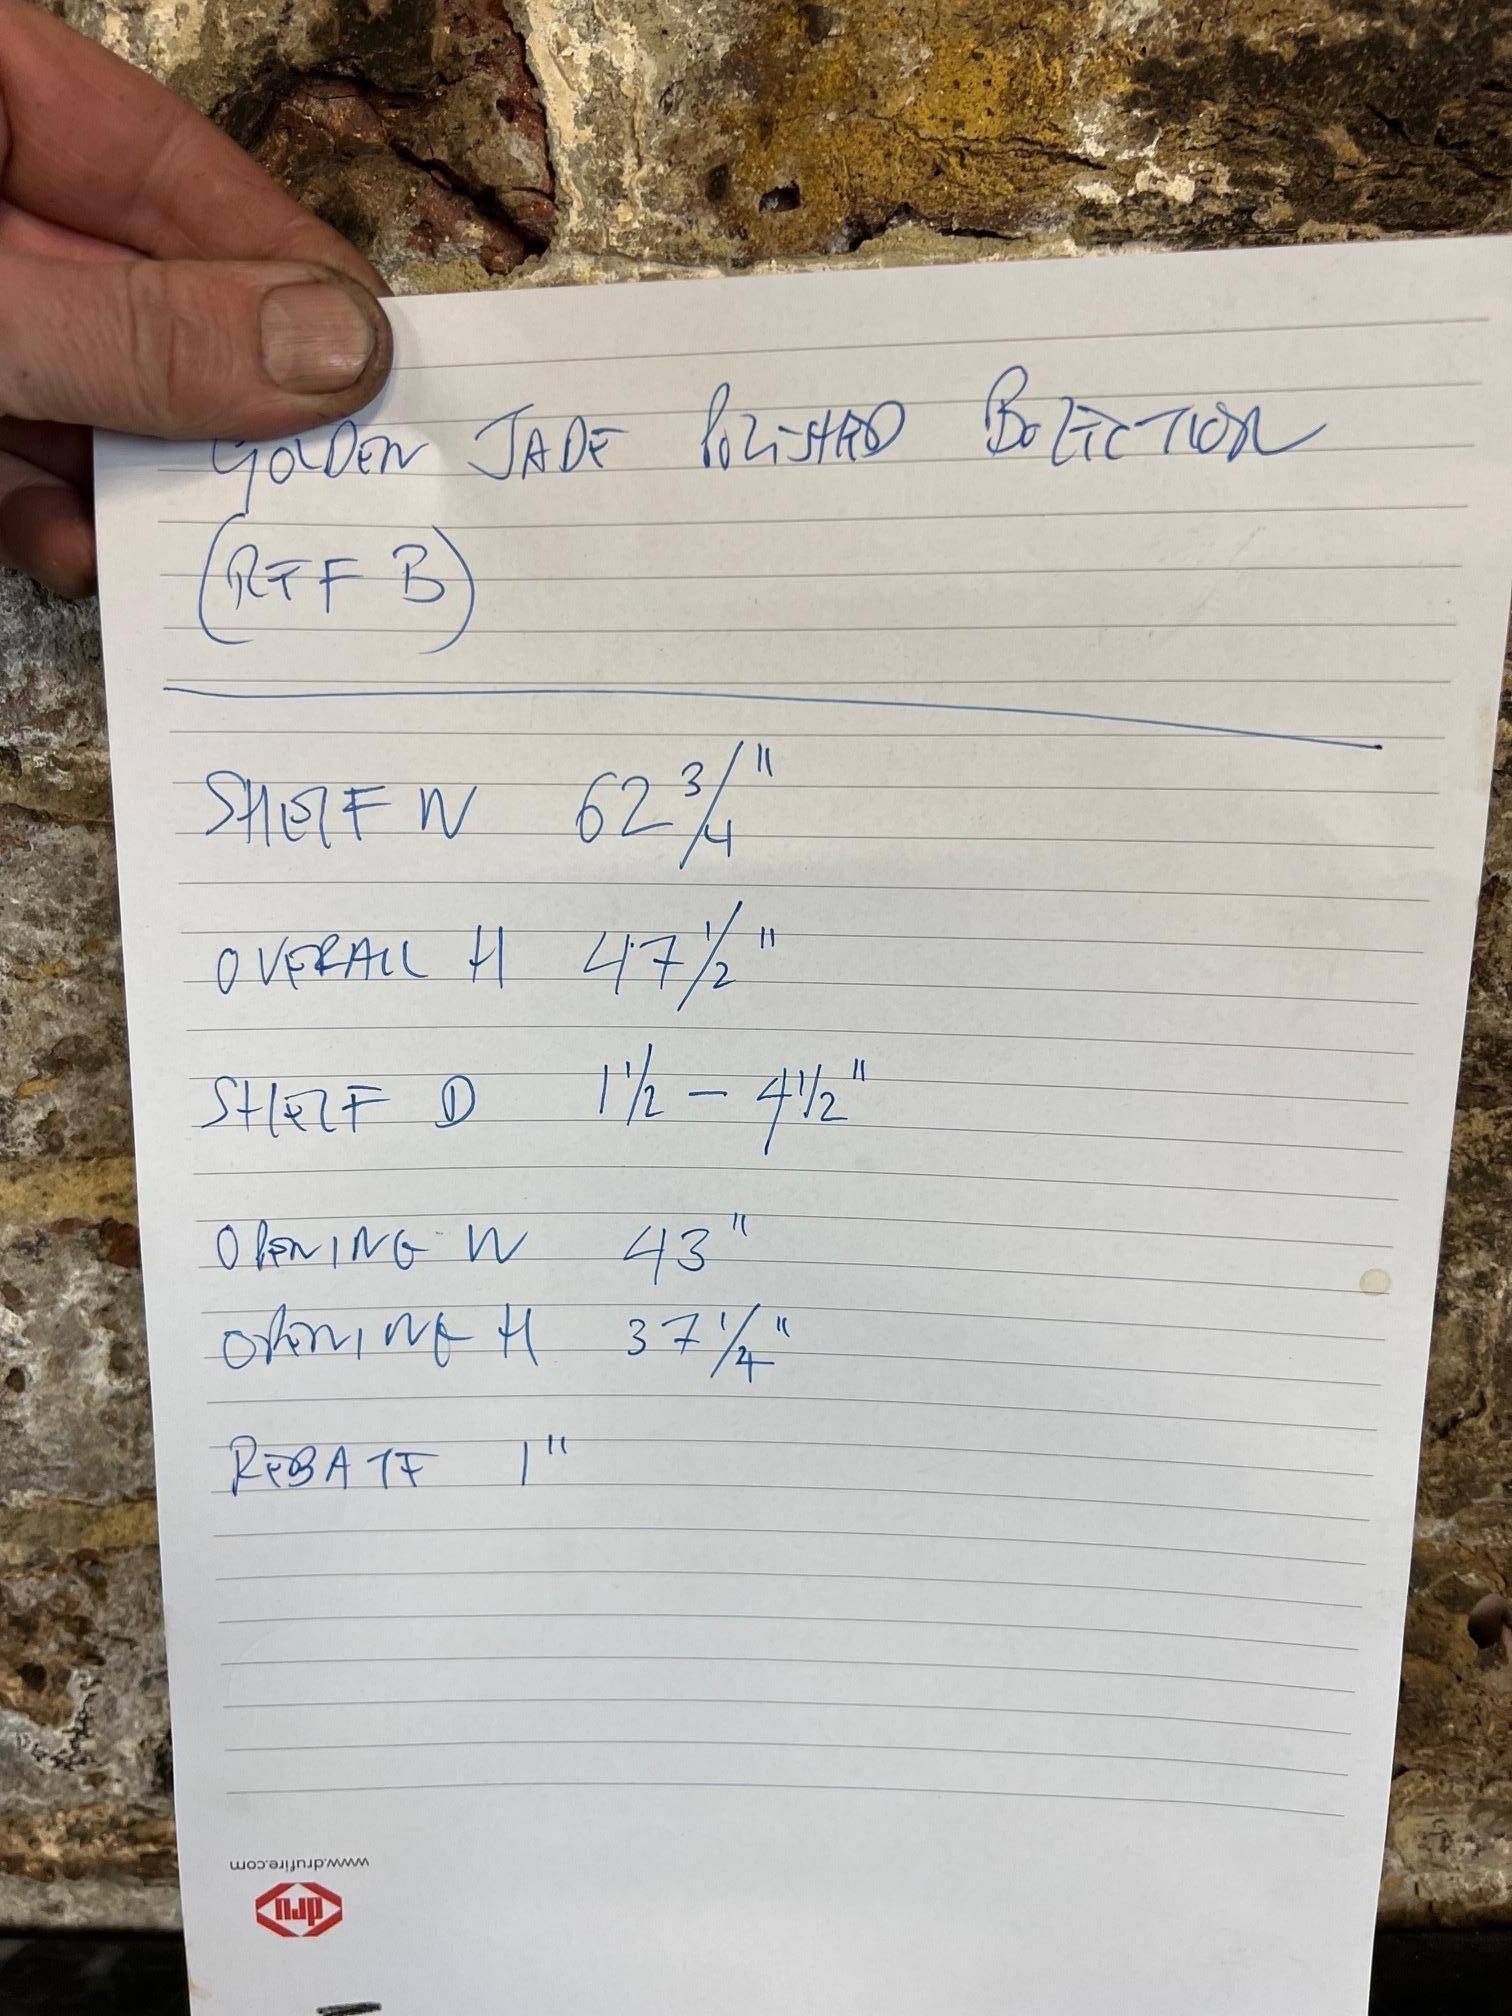 GOLDEN JADE POLISHED BOLECTION
(REF B)
SHELF W 62 3/4"
OVERALL H 47 1/2"
SHELF D 1 1/2 - 4 1/2"
OPENING W 43"
OPENING H 37 1/4"
REBATE 1"
www.drufire.com
dru